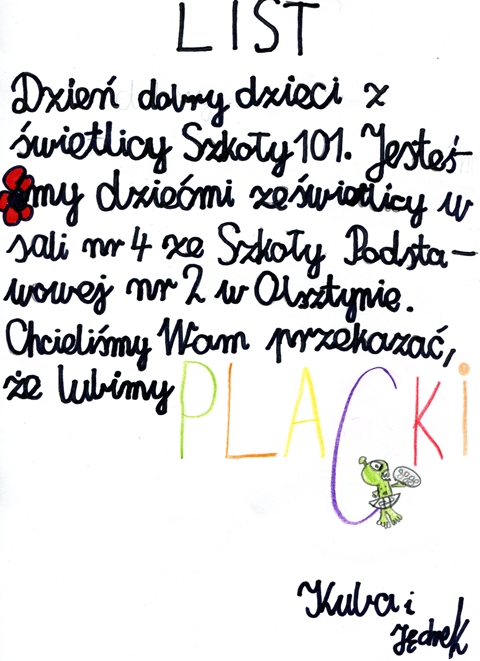 LIST
Dzień dobry dzieci z
świetlicy Szkoły 101. Jesteś-
my dziećmi ze świetlicy w
sali nr 4 ze Szkoły Podsta-
wowej nr 2 w Olsztynie.
Chcieliśmy Wam przekazać,
że lubimy PLACKi
Kuba i
Jędrek